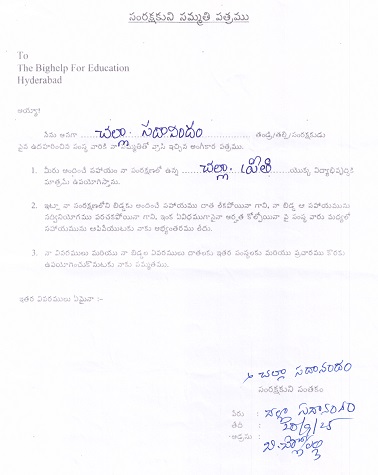 సంరక్షకుని సమ్మతి పత్రము
To
The Bighelp For Education
Hyderabad
అయ్యా!
నేను అనగా చల్లా సదానందం తండ్రి/తల్లి/సంరక్షకుడు
పైన ఉదహరించిన సంస్థ వారికి నా సమ్మతితో వ్రాసి ఇచ్చిన అంగీకార పత్రము.
1. మీరు అందించే సహాయం నా సంరక్షణలో ఉన్న చల్లా యొక్క విద్యాభివృద్ధికి
మాత్రమే ఉపయోగిస్తాను.
2. ఇట్లా నా సంరక్షణలోని బిడ్డకు అందించే సహాయము దాత లేకపోయినా గాని, నా బిడ్డ ఆ సహాయమును
సద్వినియోగము పరచకపోయినా గాని, ఇంక ఏవిధముగానైనా అర్హత కోల్పోయినా పై సంస్థ వారు మధ్యలో
సహాయమును ఆపివేయుటకు నాకు అభ్యంతరము లేదు.
3. నా వివరములు మరియు నా బిడ్డల వివరములు దాతలకు ఇతర సంస్థలకు మరియు ప్రచారము కొరకు
ఉపయోగించుకొనుటకు నాకు సమ్మతము.
ఇతర వివరములు ఏమైనా :-
చల్లా సదానందం
సంరక్షకుని సంతకం
పేరు : చల్లా సదానందం
తేది :
అడ్రసు :